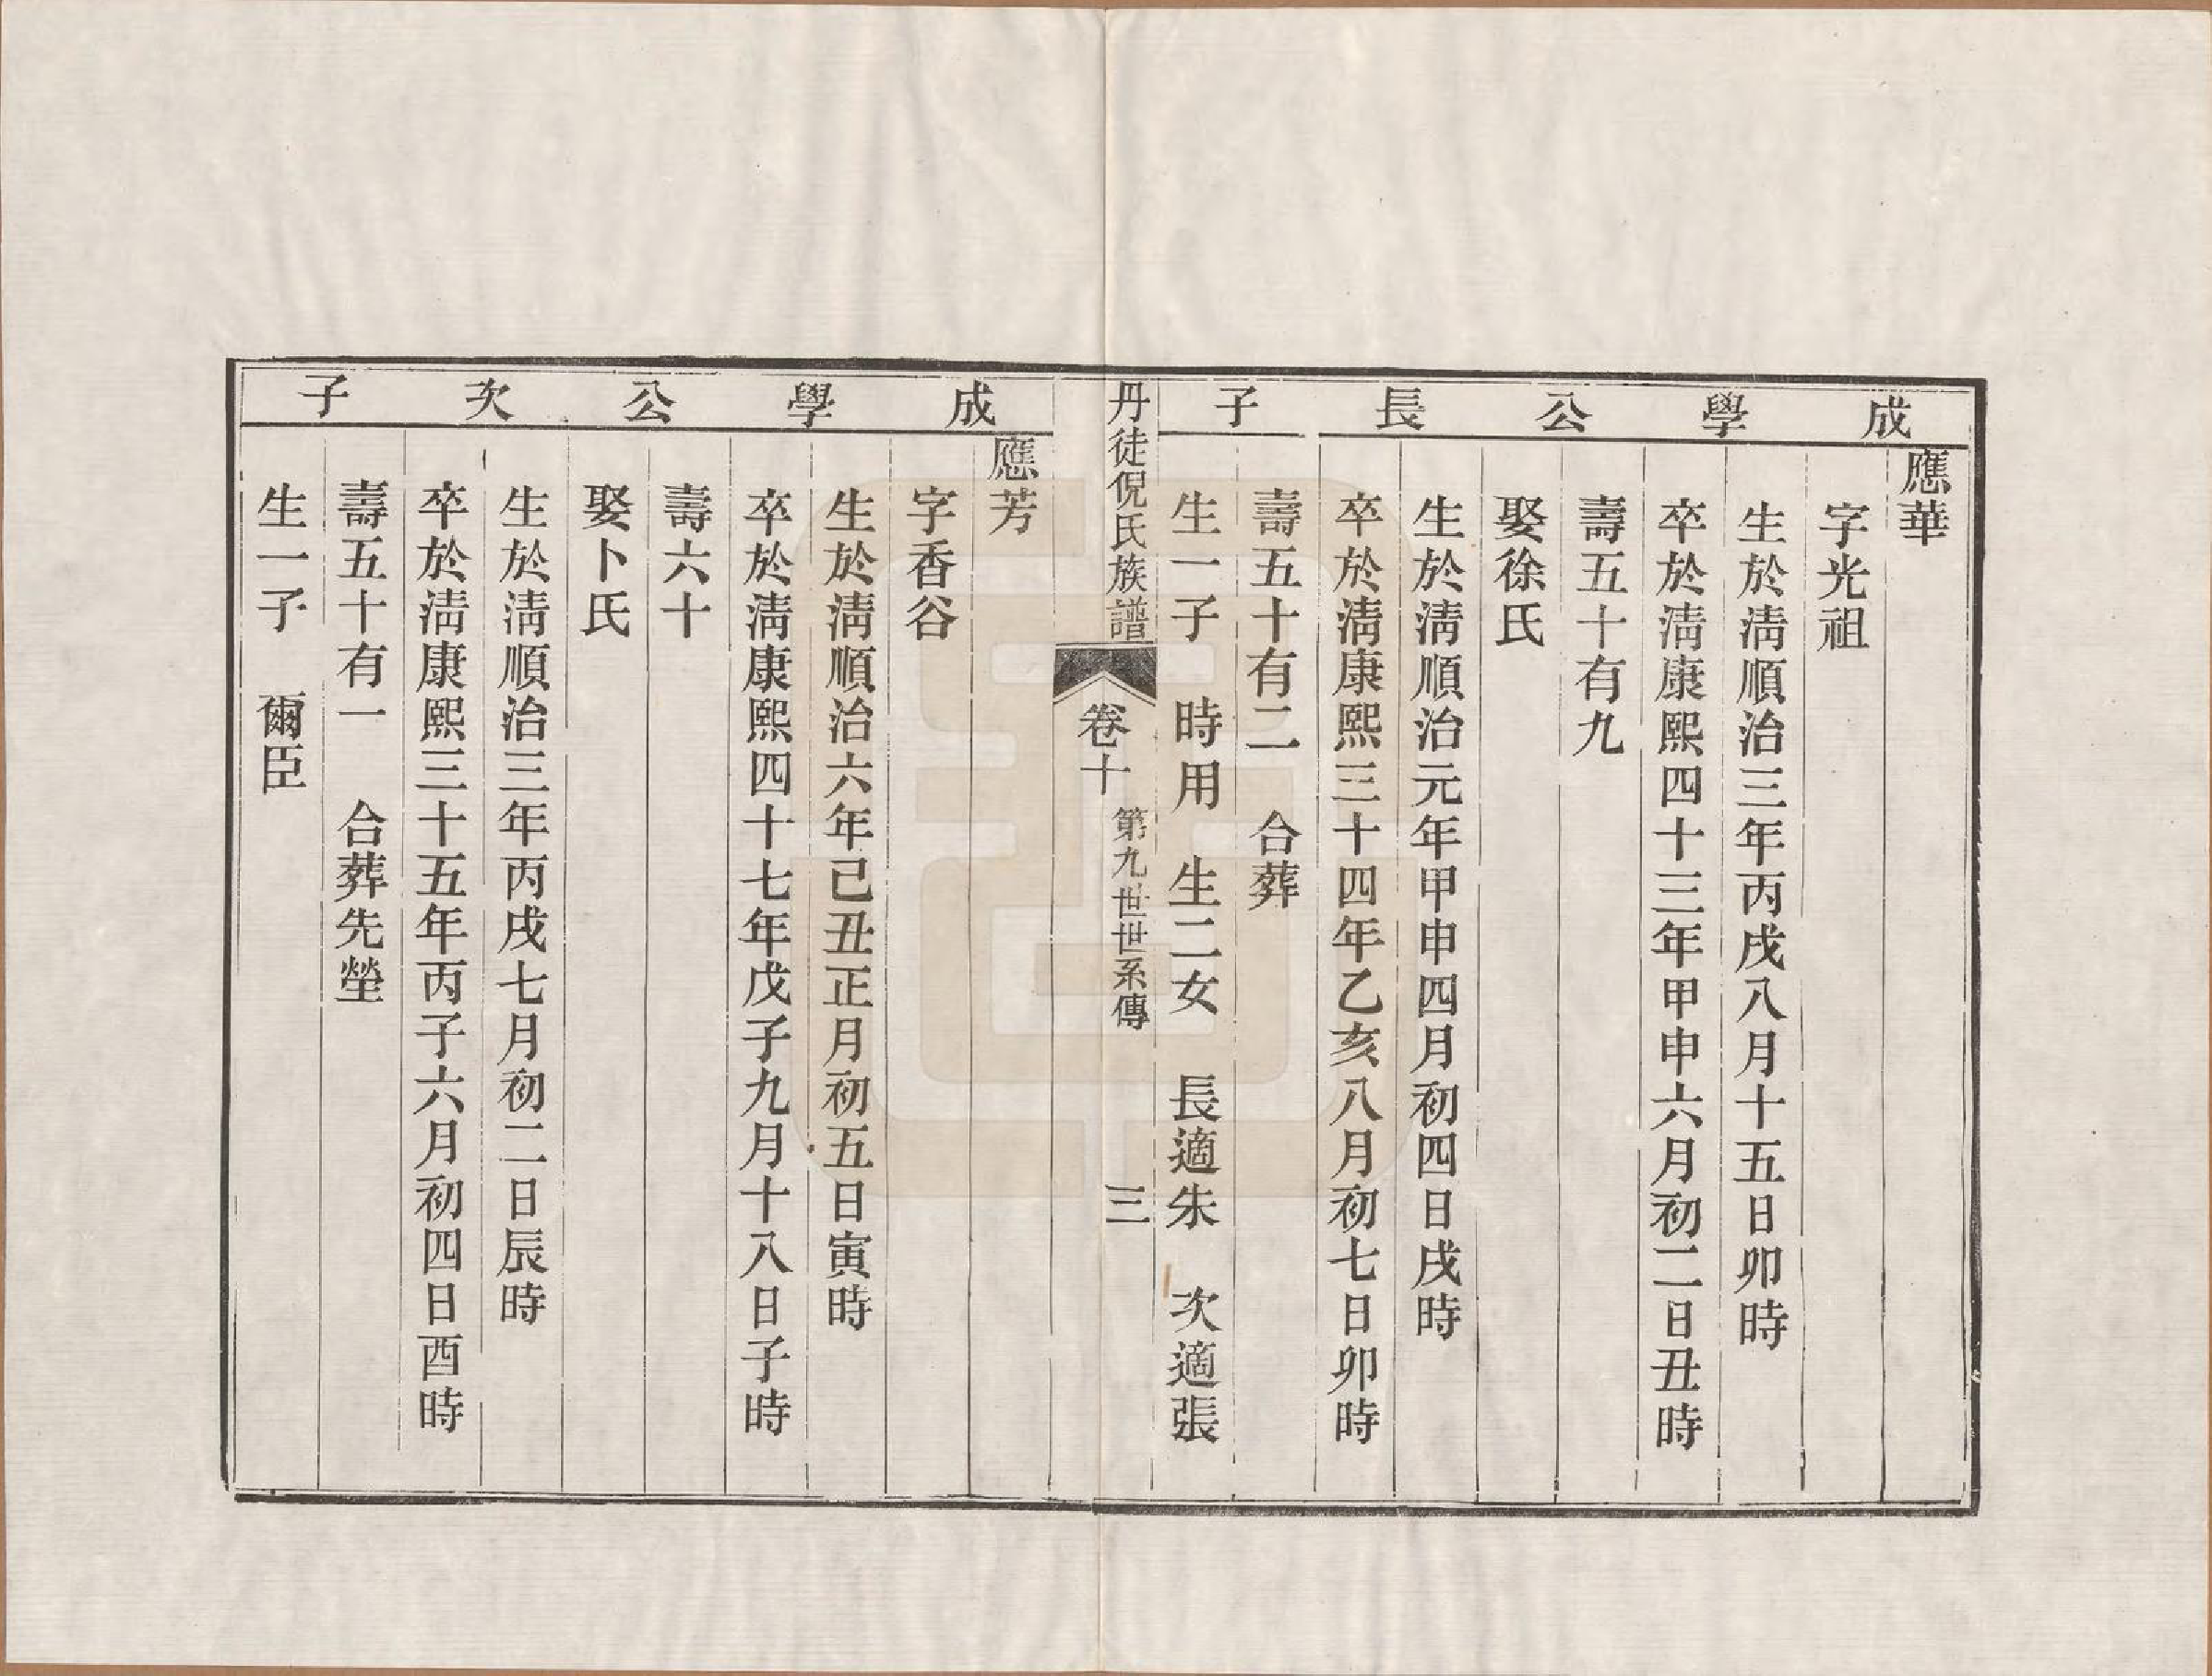 成學公長子
應華
字光祖
生於淸順治三年丙戌八月十五日卯時
卒於淸康熙四十三年甲申六月初二日丑時
壽五十有九
娶徐氏
生於淸順治元年甲申四月初四日戌時
卒於淸康熙三十四年乙亥八月初七日卯時
壽五十有二　合葬
生一子　時用　生二女　長適朱　次適張
丹徒倪氏族譜　卷十　第九世世系傳　三
成學公次子
應芳
字香谷
生於淸順治六年己丑正月初五日寅時
卒於淸康熙四十七年戊子九月十八日子時
壽六十
娶卜氏
生於淸順治三年丙戌七月初二日辰時
卒於淸康熙三十五年丙子六月初四日酉時
壽五十有一　合葬先塋
生一子　爾臣